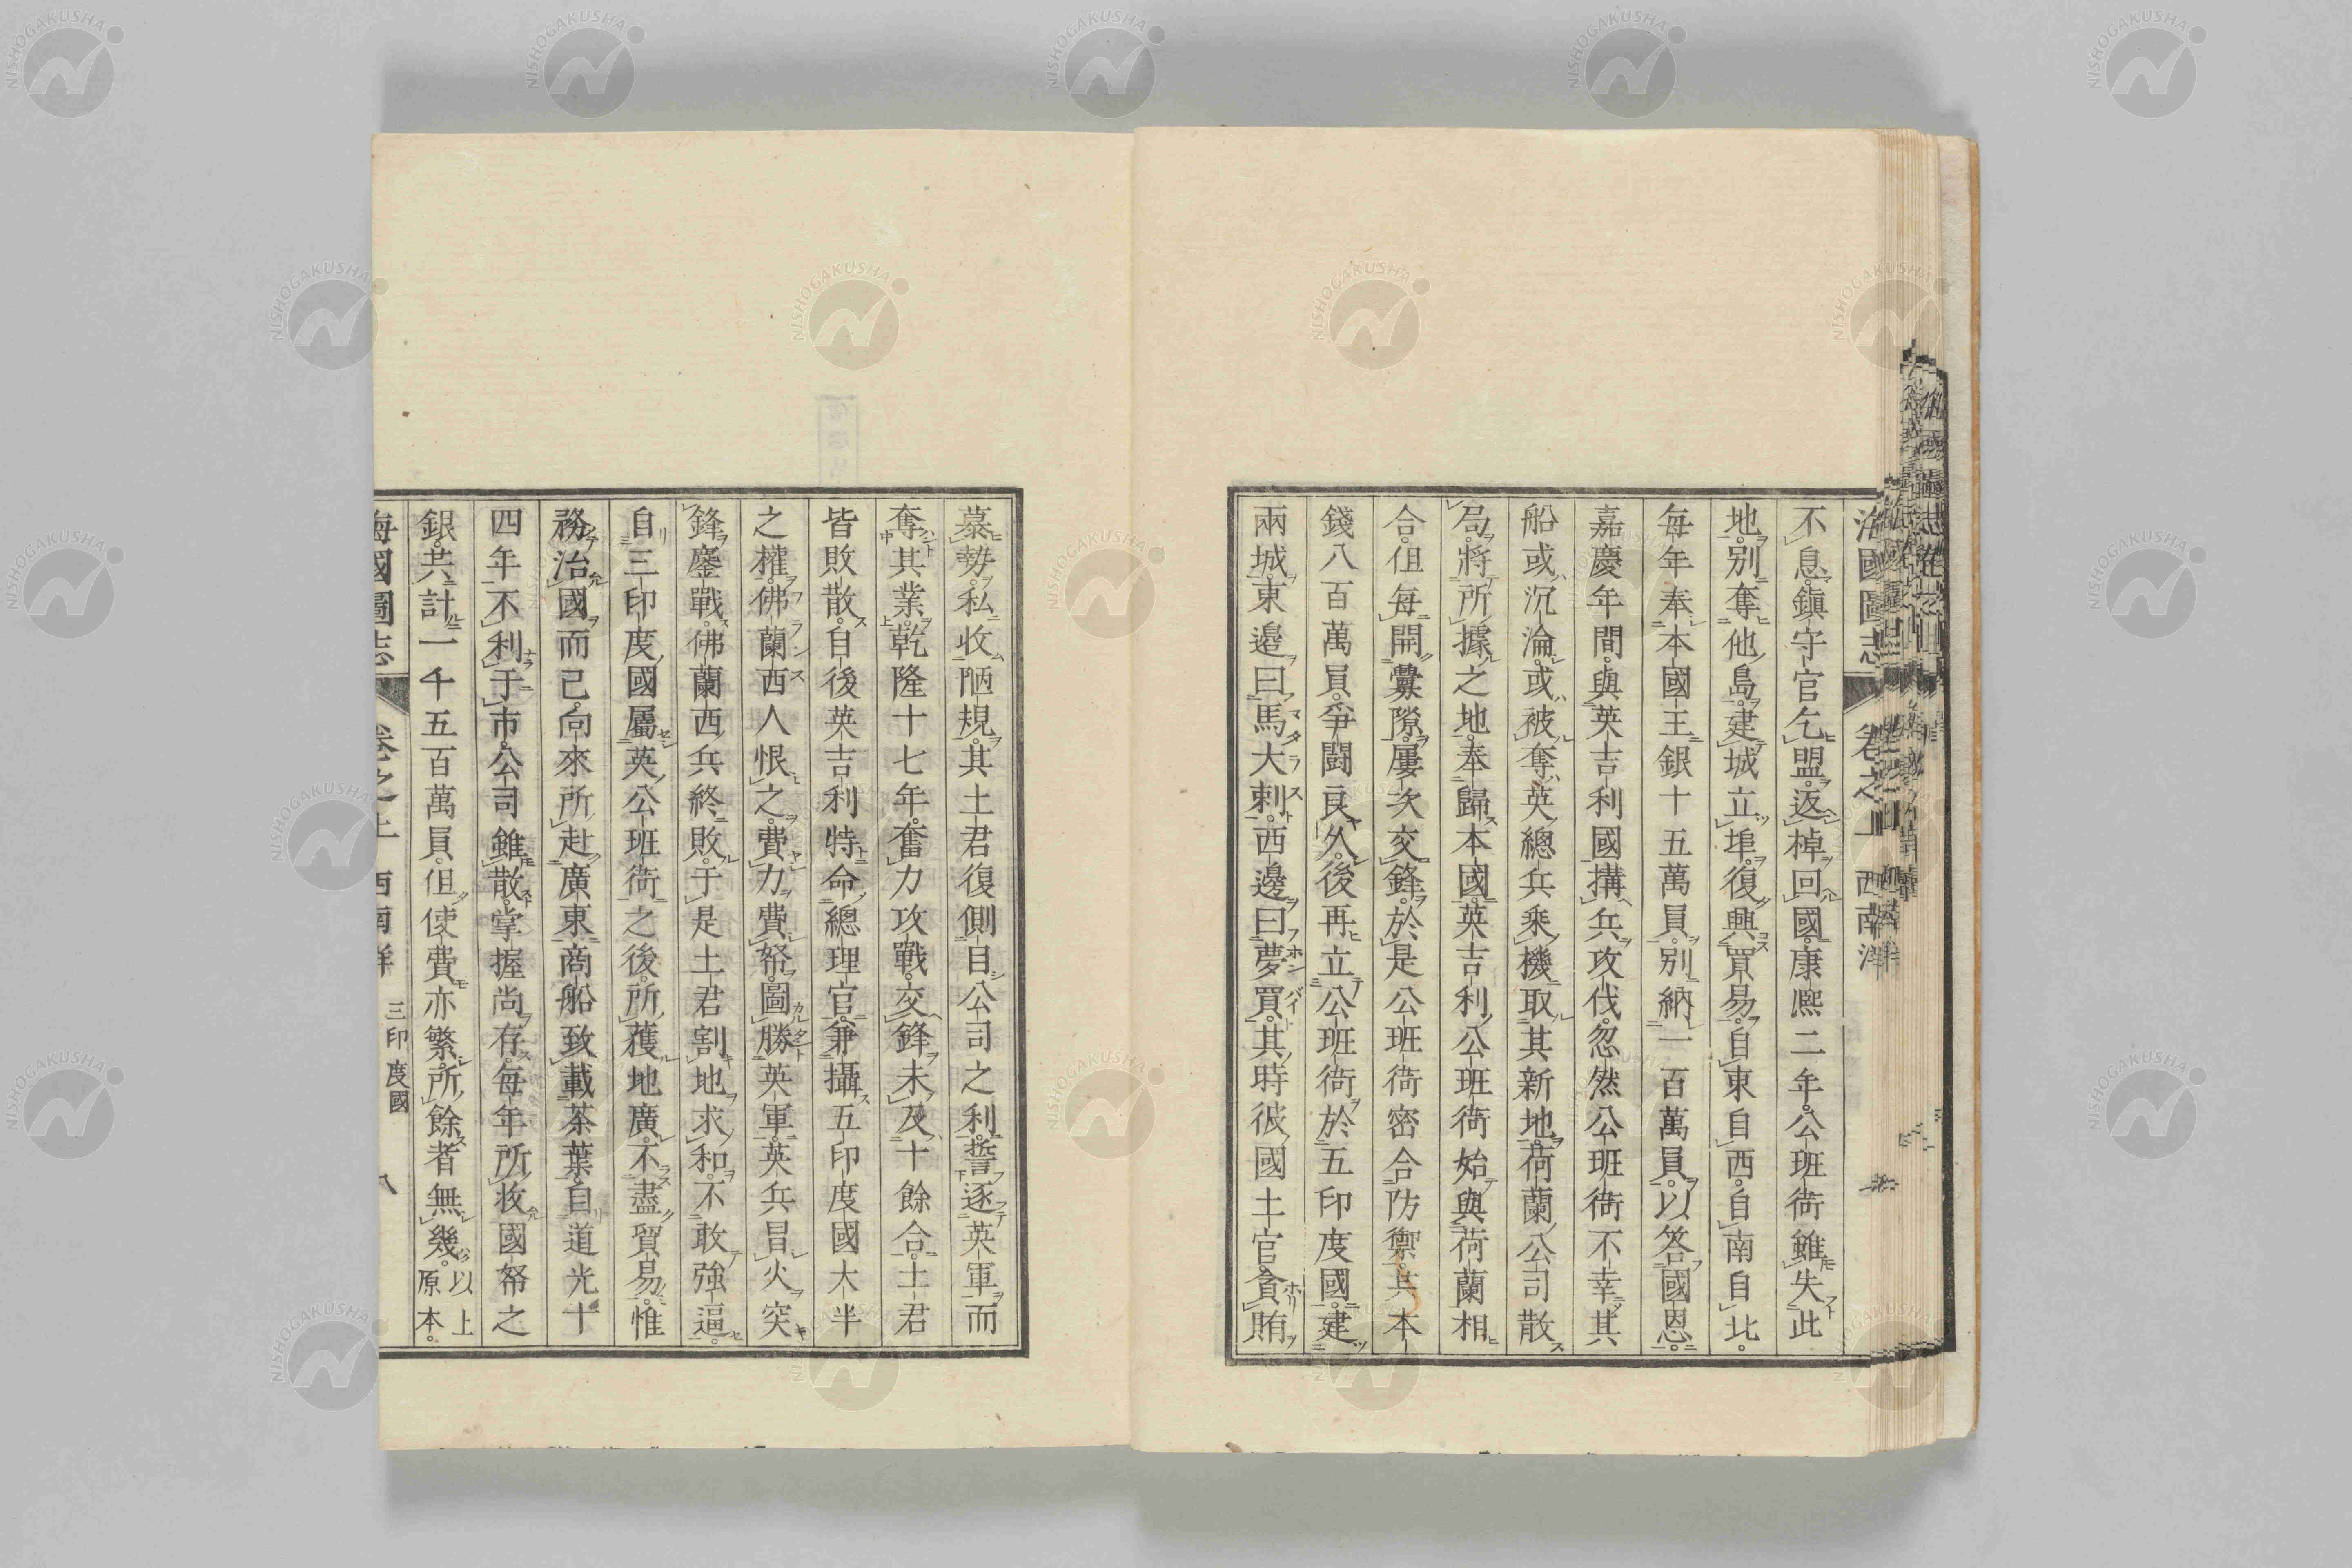 海國圖志 卷之上 西南洋
不息。鎭守官乞盟。返棹回國。康熙二年。公班衙雖失此
地。別奪他島。建城立埠。復興買易。自東自西。自南自北。
每年奉本國王銀十五萬員。別納一百萬員。以答國恩。
嘉慶年間。與英吉利國搆兵攻伐。忽然公班衙不幸其
船或沉淪。或被奪。英總兵乘機取其新地。荷蘭公司散
局。將所據之地。奉歸本國。英吉利公班衙始與荷蘭相
合。但每開釁隙。屢次交鋒。於是公班衙密合防禦。共本
錢八百萬員。爭鬭良久。後再立公班衙於五印度國。建
兩城。東邊曰馬大剌。西邊曰夢買。其時彼國土官。貪賄
慕勢。私收陋規。其土君復側目公司之利。誓逐英軍而
奪其業。乾隆十七年。奮力攻戰。交鋒未及十餘合。土君
皆敗散。自後英吉利特命總理官。兼攝五印度國大半
之權。佛蘭西人恨之。費力費帑。圖勝英軍。英兵冒火突
鋒鏖戰。佛蘭西兵終敗。于是土君割地求和。不敢強逼。
自三印度國屬英公班衙之後。所獲地廣。不盡貿易。惟
務治國而已。向來所赴廣東商船致載茶葉。自道光十
四年不利于市。公司雖散。掌握尚存。每年所收國帑之
銀。共計一千五百萬員。但使費亦繁。所餘者無幾。以上
原本。
海國圖志 卷之上 西南洋 三印度國 八